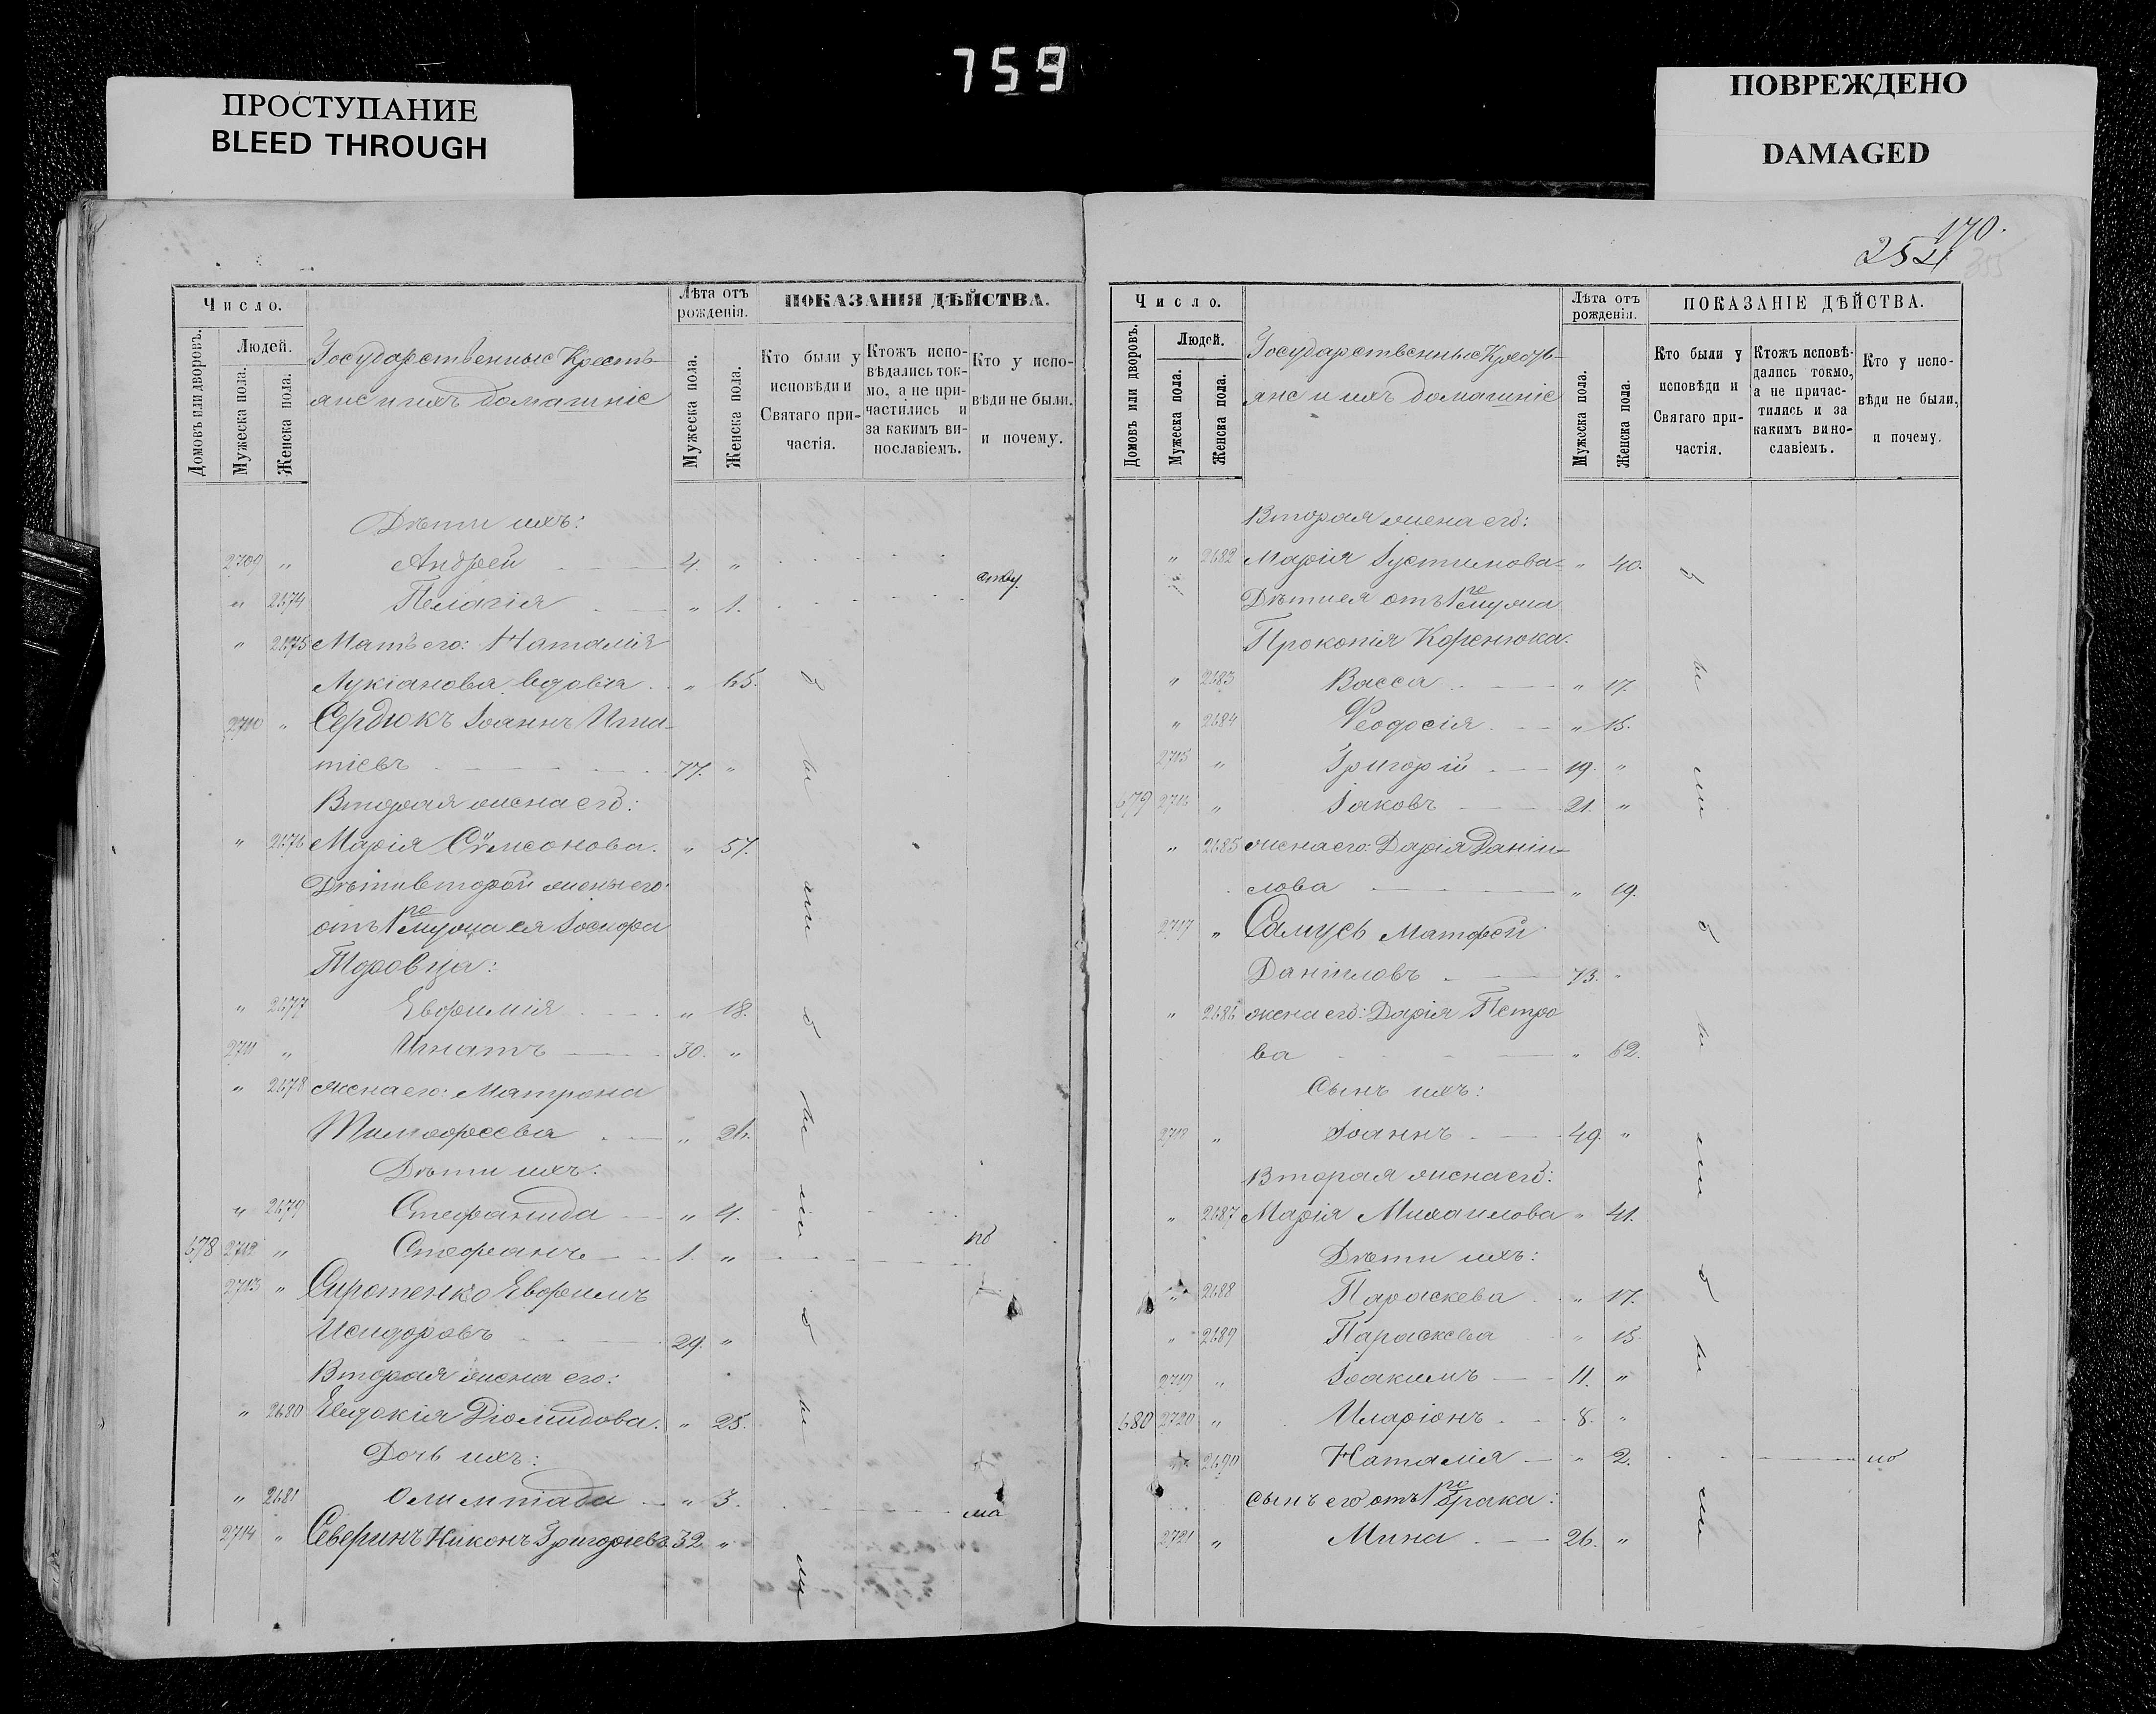 759
ПРОСТУПАНИЕ
BLEED THROUGH
ПОВРЕЖДЕНО
DAMAGED
Число.
Людей.
Домовъ или дворовъ.
Мужеска пола.
Женска пола.
Государственные Кресть-
яне и ихъ домашніе
Лѣта отъ рожденія.
Мужеска пола.
Женска пола.
ПОКАЗАНІЯ ДѢЙСТВА.
Кто были у исповѣди и Святаго при-частія.
Ктожъ испо-вѣдались ток-мо, а не при-частились и за какимъ ви-нославіемъ.
Кто у испо-вѣди не были, и почему.
Дѣти ихъ:
2709 " Андрей 4. "
" 2674 Пелагія " 1.
" 2675 Мать его: Наталія
Лукіанова вдова " 65.
2710 " Сердюкъ Іоаннъ Игна-
тіевъ 77. "
Вторая жена его:
" 2676 Марія Самсонова. " 57.
Дѣти второй жены его
отъ 1го мужа ея Іосифа
" 2677 Евфимія " 18.
2711 " Игнатъ 30. "
" 2678 жена его: Матрона
Тимофеева " 26.
Дѣти ихъ:
" 2679 Стефанида " 4.
678 2712 " Стефанъ 1. "
2713 " Сиротенко Евфимъ
Исидоровъ 29. "
Вторая жена его:
" 2680 Евдокія Діомидова. " 25.
Дочь ихъ:
" 2681 Олимпіада " 3.
2714 " Северинъ Никонъ Григорьевъ 32 "
были были были
170.
252
Число.
Людей.
Домовъ или дворовъ.
Мужеска пола.
Женска пола.
Государственные Кресть-
яне и ихъ домашніе
Лѣта отъ рожденія.
Мужеска пола.
Женска пола.
ПОКАЗАНІЕ ДѢЙСТВА.
Кто были у исповѣди и Святаго при-частія.
Ктожъ исповѣ-дались токмо, а не причас-тились и за какимъ вино-славіемъ.
Кто у испо-вѣди не были, и почему.
Вторая жена его:
" 2682 Марія Іустинова " 40.
Дѣти ея отъ 1го мужа
Прокопія Коренюка.
" 2683 Васса " 17.
" 2684 Ѳеодосія " 15.
2715 " Григорій 19. "
679 2716 " Іаковъ 21. "
" 2685 жена его: Дарія Даніи-
лова " 19.
2717 " Самусь Матфей
Даніиловъ 73. "
" 2686 жена его: Дарія Петро
ва " 62.
Сынъ ихъ:
2718 " Іоаннъ 49. "
Вторая жена его:
" 2687 Марія Михаилова " 41.
Дѣти ихъ:
" 2688 Параскева " 17.
" 2689 Параскева " 15.
2719 " Іоакимъ 11. "
680 2720 " Иларіонъ 8. "
" 2690 Наталія " 2.
сынъ его отъ 1го брака:
2721 " Мина 26. "
были были были